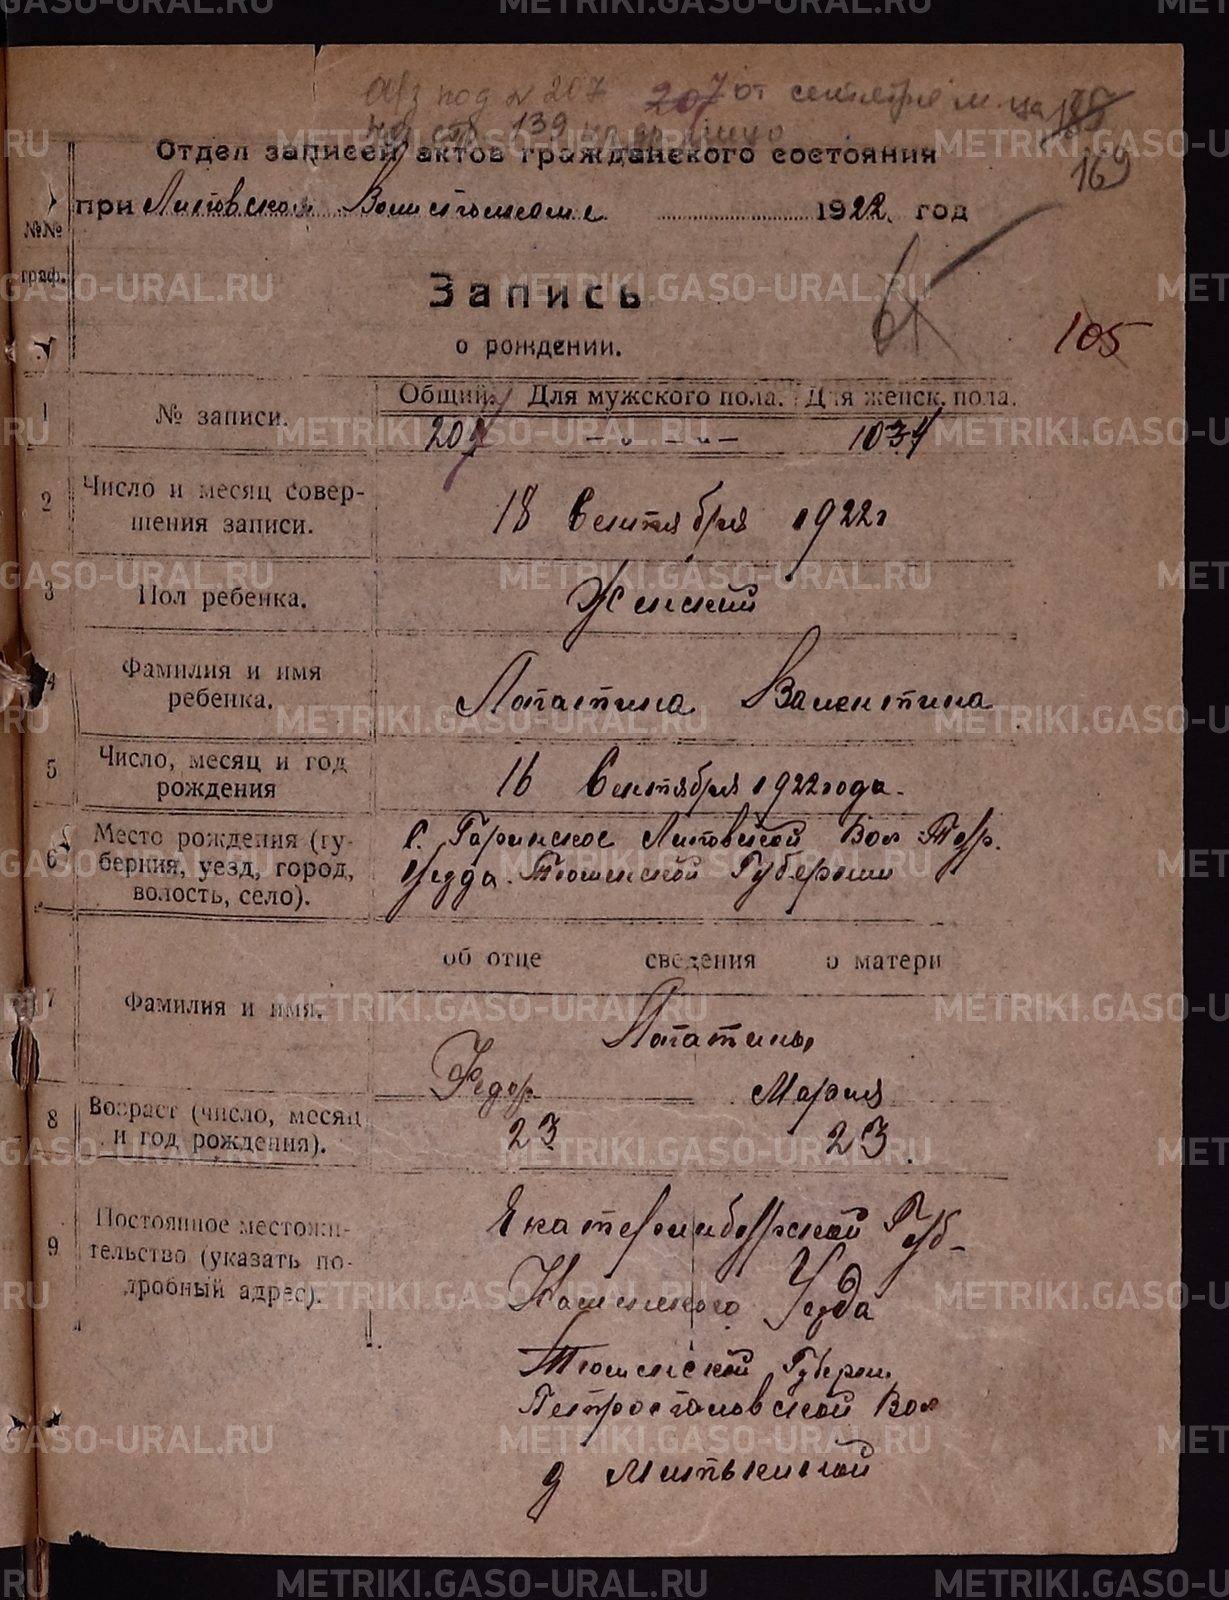 207 от сентября м-ца
на стр. 139
169
Отдел записей актов гражданского состояния
при Липовском Волисполкоме 1922 год
№№ граф.
Запись
о рождении.
105
Общий. Для мужского пола. Для женск. пола.
1 № записи. 207 — „ — „ — 103
2 Число и месяц совер-
шения записи. 18 Сентября 1922 г
3 Пол ребенка. Женский
4 Фамилия и имя
ребенка. Лопатина Валентина
5 Число, месяц и год
рождения 16 Сентября 1922 года.
6 Место рождения (гу-
берния, уезд, город,
волость, село).
С. Гаринское Липовской Вол Тюр.
Уезда. Тюменской Губернии
об отце сведения о матери
7 Фамилия и имя. Лопатины
Федор Мария
8 Возраст (число, месяц
и год рождения). 23 23
9 Постоянное местожи-
тельство (указать по-
дробный адрес).
Екатеринбургской Губ-
Уезда
Тюменской Губерн.
Вол
д
METRIKI.GASO-URAL.RU